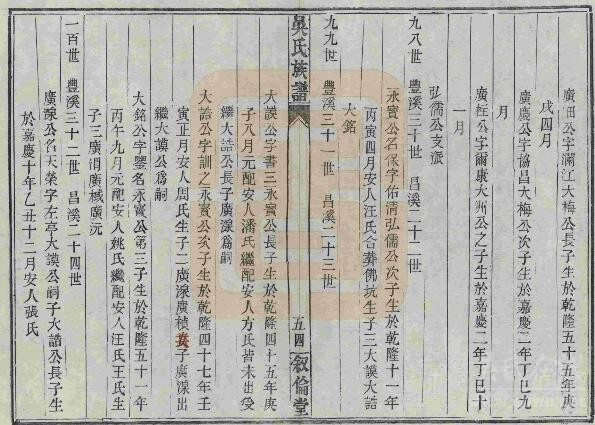 廣田公字瀾江大梅公長子生於乾隆五十五年庚
戌四月
廣慶公字協昌大梅公次子生於嘉慶二年丁巳九
月
廣桂公字爾康大洲公之子生於嘉慶二年丁巳十
一月
弘儒公支派
九八世 豐溪三十世 昌溪二十二世
永賓公名保字佑清弘儒公次子生於乾隆十一年
丙寅四月安人汪氏合葬佛坑生子三大謨大誥
大銘
九九世 豐溪三十一世 昌溪二十三世
吳氏族譜
五四
叙倫堂
大謨公字書三永賓公長子生於乾隆四十五年庚
子八月元配安人潘氏繼配安人方氏皆未出受
繼大誥公長子廣湶為嗣
大誥公字訓之永賓公次子生於乾隆四十七年壬
寅正月安人周氏生子二廣湶廣積長子廣湶出
繼大謨公為嗣
大銘公字鑒名永賓公第三子生於乾隆五十一年
丙午九月元配安人姚氏繼配安人汪氏王氏生
子三廣渭廣棫廣沅
一百世 豐溪三十二世 昌溪二十四世
廣湶公名天榮字左亭大謨公嗣子大誥公長子生
於嘉慶十年乙丑十二月安人張氏